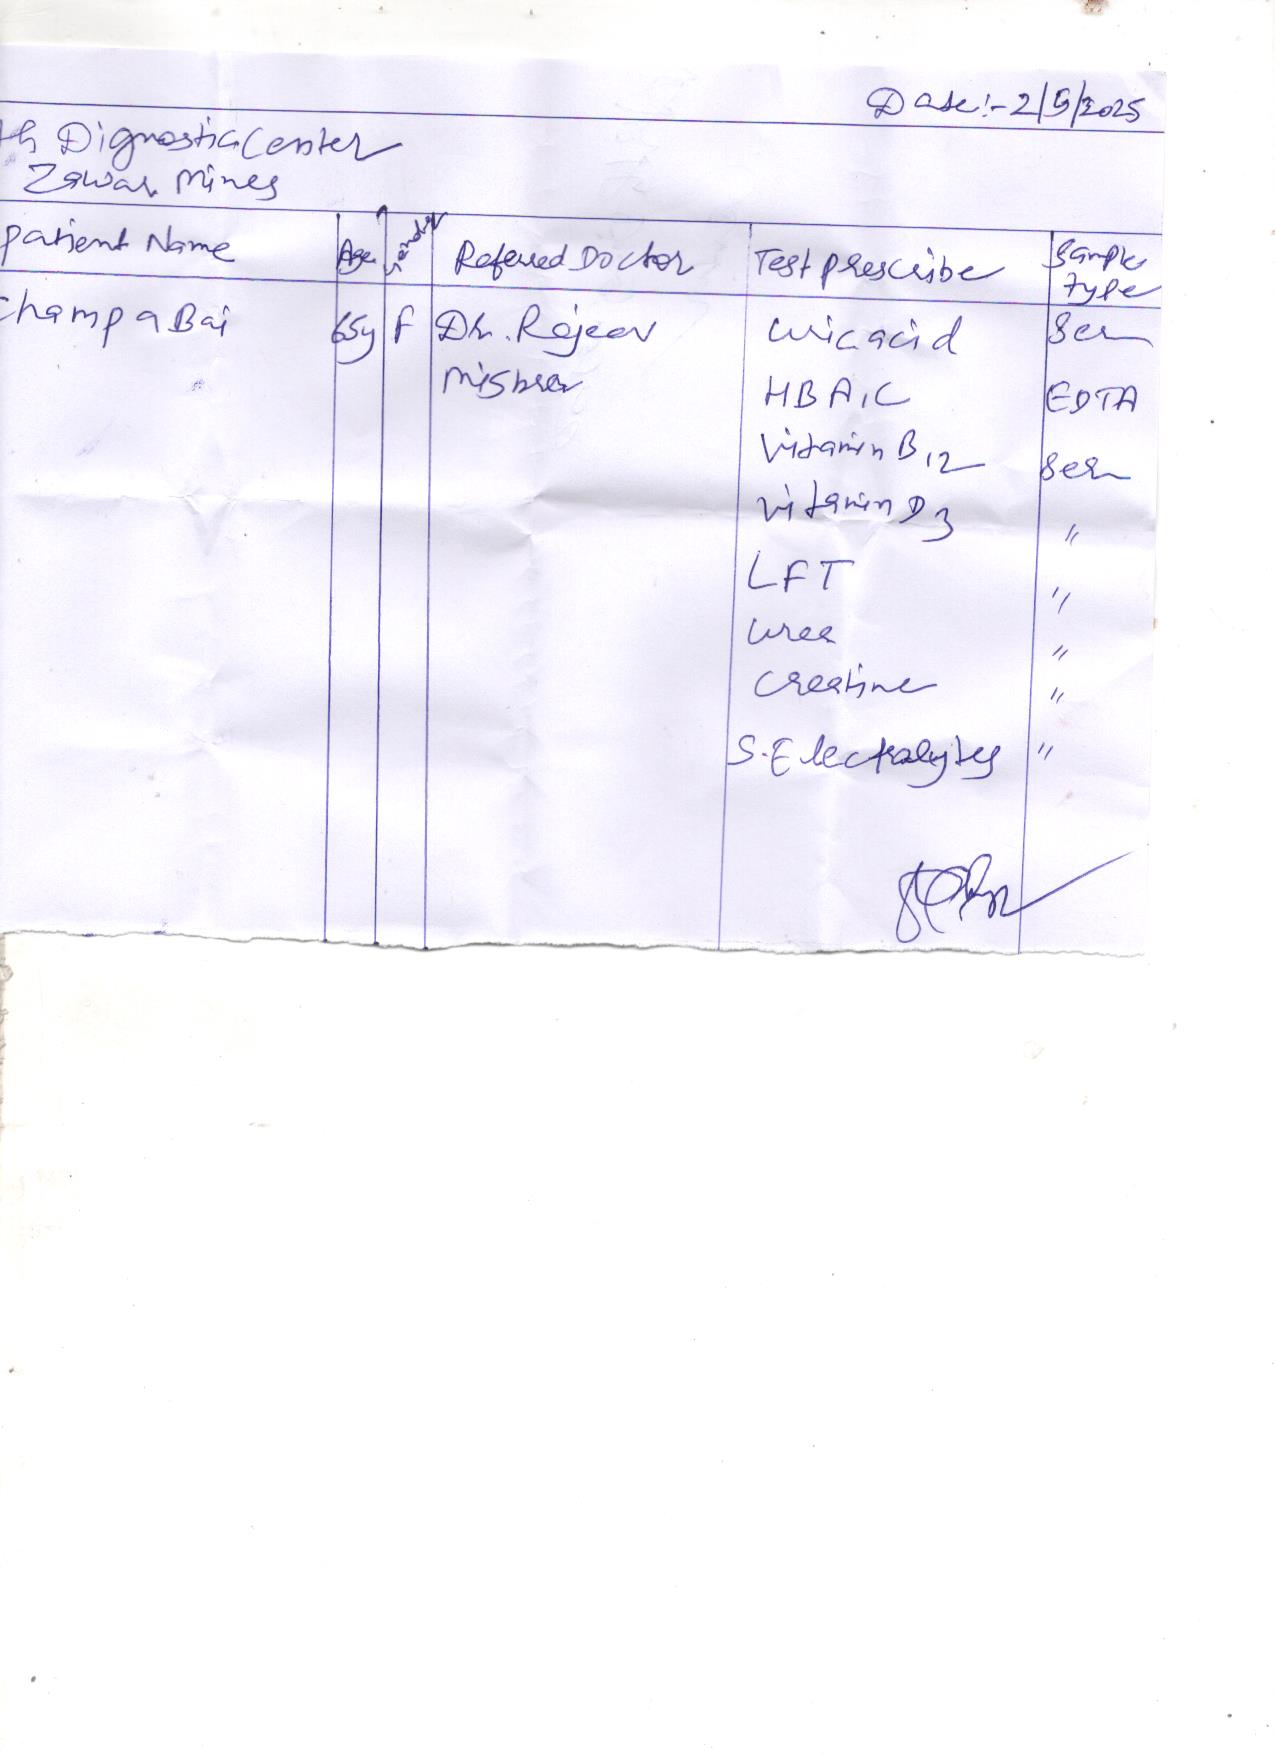 Date:- 2/5/2025
th Dignostic Center
Zawar Mines
patient Name Age Gender Referred Doctor Test prescribe Sample type
Champa Bai 65y F Dr. Rajeev Mishra uric acid Ser
HBA1C EDTA
Vitamin B12 Ser
Vitamin D3 "
LFT "
urea "
Creatine "
S. Electrolytes "